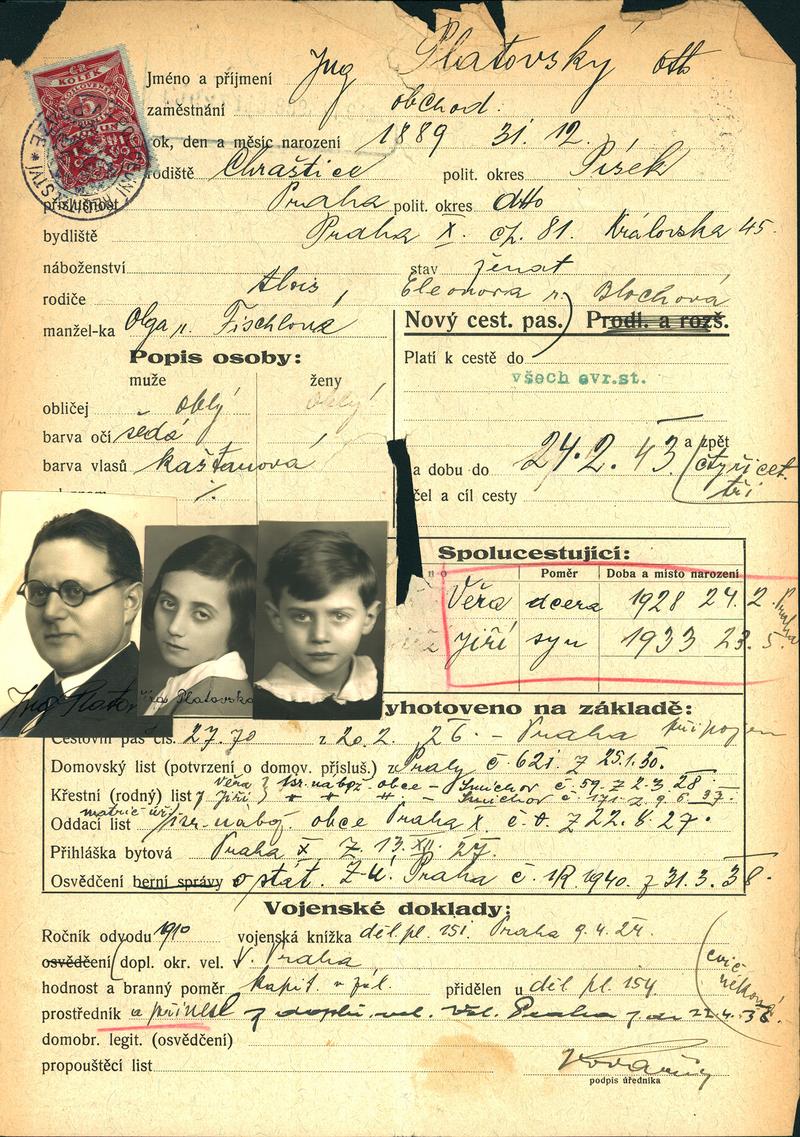 ČR.
KOLEK
5
Jméno a příjmení Ing Platovský Otto
zaměstnání obchod.
rok, den a měsíc narození 1889 31. 12.
rodiště Chraštice polit. okres Písek
příslušnost Praha polit. okres dtto
bydliště Praha X. čp. 81. Královska 45.
náboženství stav ženat
rodiče Alois, Eleonora r. Blochová
manžel-ka Olga r. Fischlová
Nový cest. pas. Prodl. a rozš.
Popis osoby:
Platí k cestě do
všech evr. st.
muže ženy
obličej oblý oblý
barva očí šedá
barva vlasů kaštanová
a dobu do 24. 2. 43 a zpět
(čtyřicet
tři
čel a cíl cesty
Spolucestující:
Poměr Doba a místo narození
Věra dcera 1928 24. 2. Praha
Jiří syn 1933 23. 5.
Ing Platov
Platovska
yhotoveno na základě:
Cestovní pas čís. 2770 z 20. 2. 26 - Praha připojen
Domovský list (potvrzení o domov. přísluš.) z Prahy č. 621 z 25. 1. 30.
Věra isr. nabož. obce - Smíchov č. 59. z 2. 3. 28
Křestní (rodný) list Jiří - Smíchov č. 171. z 9. 6.
Oddací list isr. nabož. obce Praha X. č. 8. z 22. 8. 27.
Přihláška bytová Praha X z 13. XII. 27.
Osvědčení berní správy o stát. Z. ú. Praha č. 1940. z 31. 3. 38.
Vojenské doklady:
Ročník odvodu 1910 vojenská knížka děl. pl. 151. Praha 9. 4. 24.
osvědčení (dopl. okr. vel. V. Praha
hodnost a branný poměr kapit. v zál. přidělen u děl. pl. 154
prostředník a přinesl z doplň. vel. Praha z 22. 4. 38.
domobr. legit. (osvědčení)
propouštěcí list
podpis úředníka